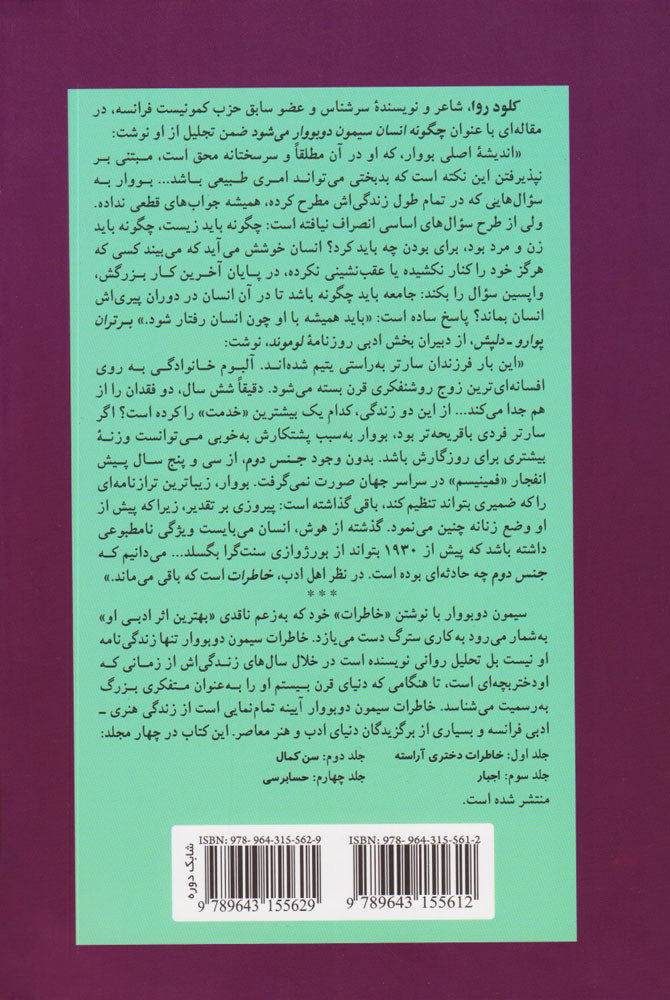 کلود روا، شاعر و نویسندهٔ سرشناس و عضو سابق حزب کمونیست فرانسه، در
مقاله‌ای با عنوان چگونه انسان سیمون دوبووار می‌شود ضمن تجلیل از او نوشت:
«اندیشهٔ اصلی بووار، که او در آن مطلقاً و سرسختانه محق است، مبتنی بر
نپذیرفتن این نکته است که بدبختی می‌تواند امری طبیعی باشد... بووار به
سؤال‌هایی که در تمام طول زندگی‌اش مطرح کرده، همیشه جواب‌های قطعی نداده.
ولی از طرح سؤال‌های اساسی انصراف نیافته است: چگونه باید زیست، چگونه باید
زن و مرد بود، برای بودن چه باید کرد؟ انسان خوشش می‌آید که می‌بیند کسی که
هرگز خود را کنار نکشیده یا عقب‌نشینی نکرده، در پایان آخرین کار بزرگش،
واپسین سؤال را بکند: جامعه باید چگونه باشد تا در آن انسان در دوران پیری‌اش
انسان بماند؟ پاسخ ساده است: «باید همیشه با او چون انسان رفتار شود.» برتران
پوارو ـ دلپش، از دبیران بخش ادبی روزنامهٔ لوموند، نوشت:
«این بار فرزندان سارتر به‌راستی یتیم شده‌اند. آلبوم خانوادگی به روی
افسانه‌ای‌ترین زوج روشنفکری قرن بسته می‌شود. دقیقاً شش سال، دو فقدان را از
هم جدا می‌کند... از این دو زندگی، کدام یک بیشترین «خدمت» را کرده است؟ اگر
سارتر فردی باقریحه‌تر بود، بووار به‌سبب پشتکارش به‌خوبی می‌توانست وزنهٔ
بیشتری برای روزگارش باشد. بدون وجود جنس دوم، از سی و پنج سال پیش
انفجار «فمینیسم» در سراسر جهان صورت نمی‌گرفت. بووار، زیباترین ترازنامه‌ای
را که ضمیری بتواند تنظیم کند، باقی گذاشته است: پیروزی بر تقدیر، زیرا که پیش از
او وضع زنانه چنین می‌نمود. گذشته از هوش، انسان می‌بایست ویژگی نامطبوعی
داشته باشد که پیش از ۱۹۳۰ بتواند از بورژوازی سنت‌گرا بگسلد... می‌دانیم که
جنس دوم چه حادثه‌ای بوده است. در نظر اهل ادب، خاطرات است که باقی می‌ماند.»
***
سیمون دوبووار با نوشتن «خاطرات» خود که به‌زعم ناقدی «بهترین اثر ادبی او»
به‌شمار می‌رود به کاری سترگ دست می‌یازد. خاطرات سیمون دوبووار تنها زندگی‌نامه
او نیست بل تحلیل روانی نویسنده است در خلال سال‌های زندگی‌اش از زمانی که
اودختربچه‌ای است، تا هنگامی که دنیای قرن بیستم او را به‌عنوان متفکری بزرگ
به‌رسمیت می‌شناسد. خاطرات سیمون دوبووار آیینه تمام‌نمایی است از زندگی هنری ـ
ادبی فرانسه و بسیاری از برگزیدگان دنیای ادب و هنر معاصر. این کتاب در چهار مجلد:
جلد اول: خاطرات دختری آراسته جلد دوم: سن کمال
جلد سوم: اجبار جلد چهارم: حسابرسی
منتشر شده است.
ISBN: 978- 964-315-561-2
9 789643 155612
ISBN: 978- 964-315-562-9
9 789643 155629
شابک دوره